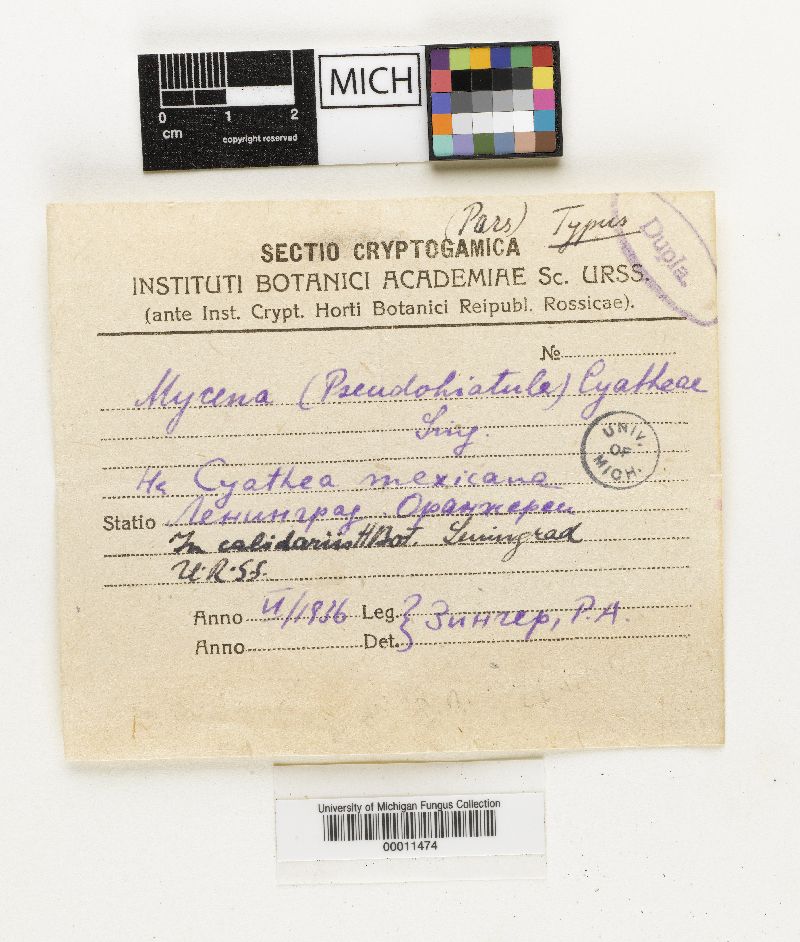 0 1 2
cm
copyright reserved
MICH
(Pars) Typus
Dupla.
SECTIO CRYPTOGAMICA
INSTITUTI BOTANICI ACADEMIAE Sc. URSS.
(ante Inst. Crypt. Horti Botanici Reipubl. Rossicae).
№
Mycena (Pseudohiatula) Cyatheae
Sing.
UNIV. OF MICH.
На Cyathea mexicana
Statio Ленинград Оранжереи
In calidariis H. Bot. Leningrad
U.R.S.S.
Anno VI/1936 Leg. Зингер, Р.А.
Anno Det.
University of Michigan Fungus Collection
00011474